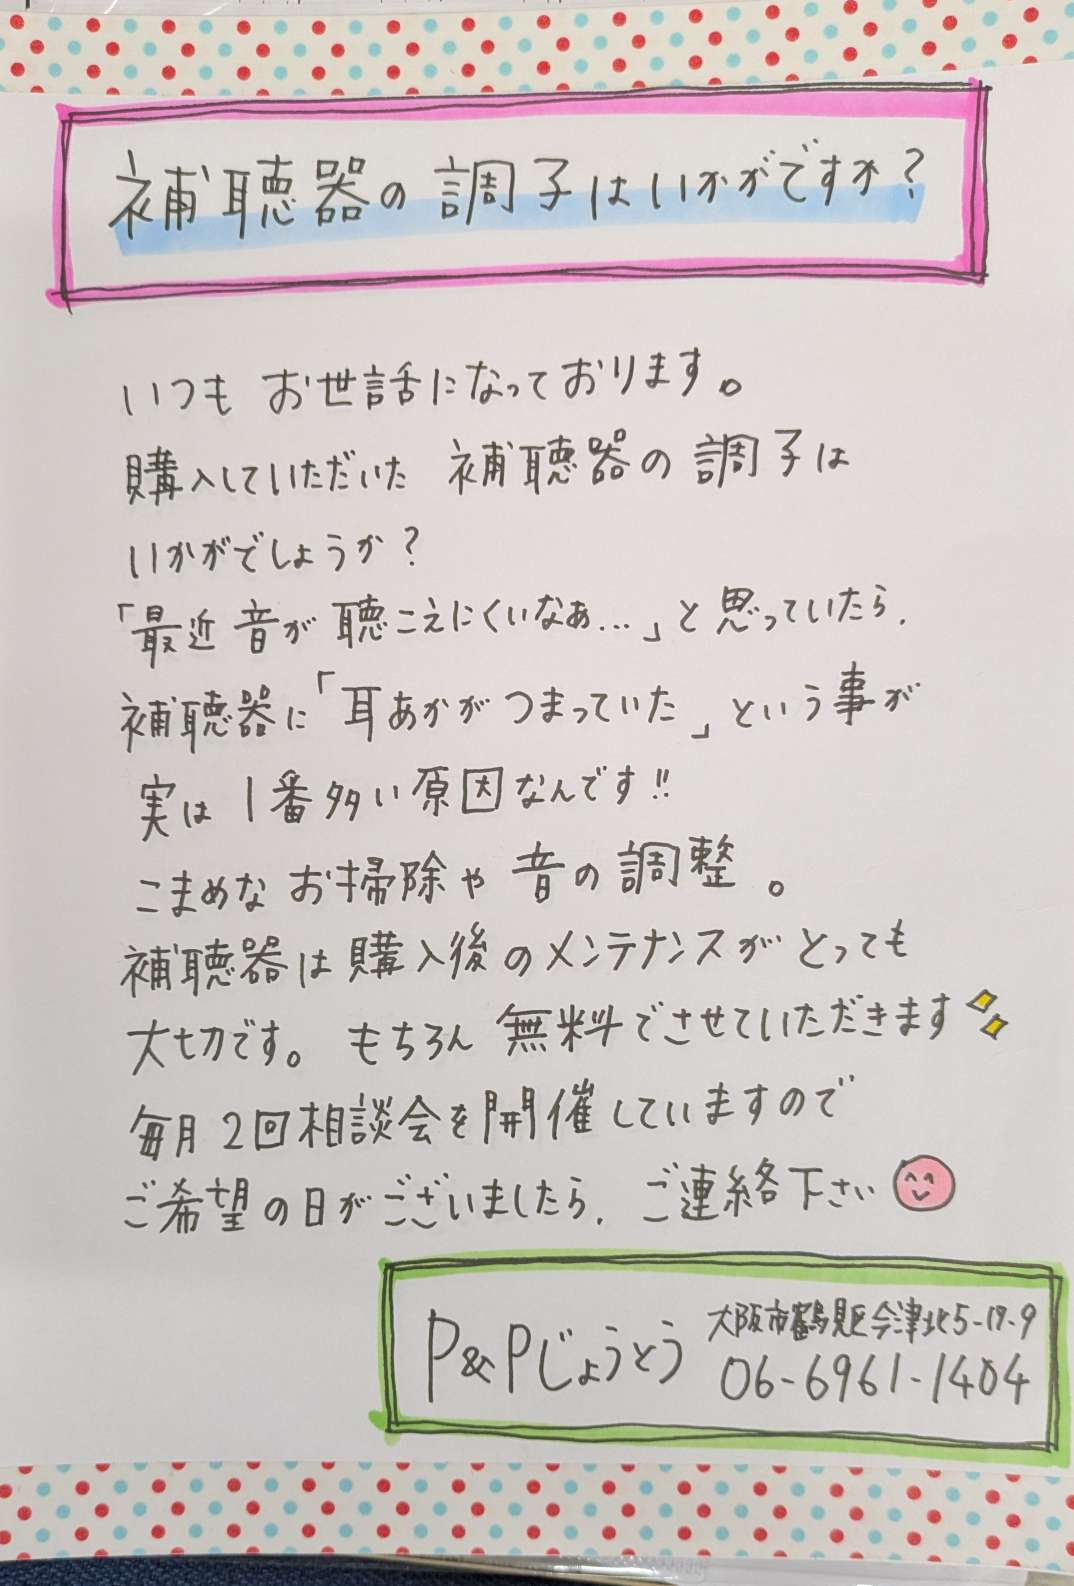 補聴器の調子はいかがですか?
いつも お世話になっております。
購入していただいた 補聴器の調子は
いかがでしょうか?
「最近 音が 聴こえにくいなぁ…」と思っていたら、
補聴器に「耳あかがつまっていた」という事が
実は 1番多い原因なんです!!
こまめな お掃除や 音の調整。
補聴器は購入後のメンテナンスがとっても
大切です。 もちろん 無料でさせていただきます
毎月2回相談会を開催していますので
ご希望の日がございましたら、ご連絡下さい
P&Pじょうとう
大阪市鶴見区今津北5-17-9
06-6961-1404